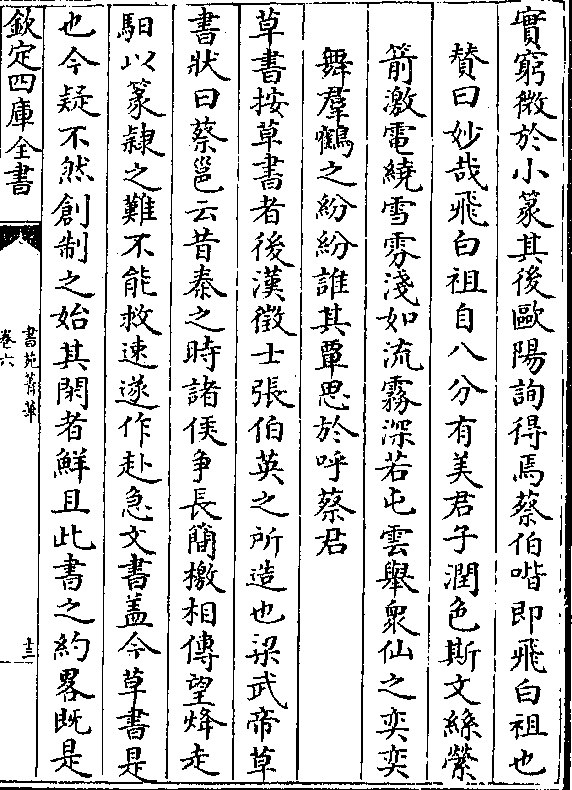 實窮微於小篆其後歐陽詢得焉蔡伯喈即飛白祖也
賛曰妙哉飛白祖自八分有美君子潤色斯文絲縈
箭激電繞雪雰淺如流霧深若屯雲舉衆仙之奕奕
舞羣鶴之紛紛誰其覃思於呼蔡君
草書按草書者後漢徴士張伯英之所造也梁武帝草
書狀曰蔡邕云昔秦之時諸侯争長簡檄相傳望烽走
馹以篆隷之難不能救速遂作赴急文書盖今草書是
也今疑不然創制之始其閑者鮮且此書之約畧既是
欽定四庫全書
書苑菁華
卷六
十三